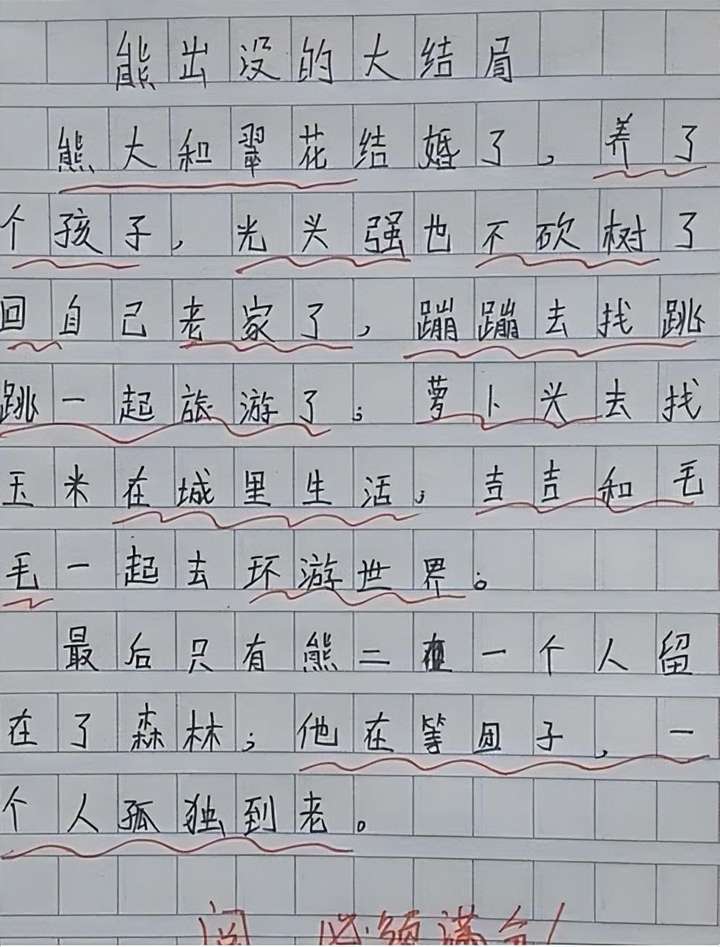 熊出没的大结局
熊大和翠花结婚了,养了
个孩子,光头强也不砍树了
回自己老家了,蹦蹦去找跳
跳一起旅游了;萝卜头去找
玉米在城里生活,吉吉和毛
毛一起去环游世界。
最后只有熊二在一个人留
在了森林;他在等团子,一
个人孤独到老。
阅 必须满分!